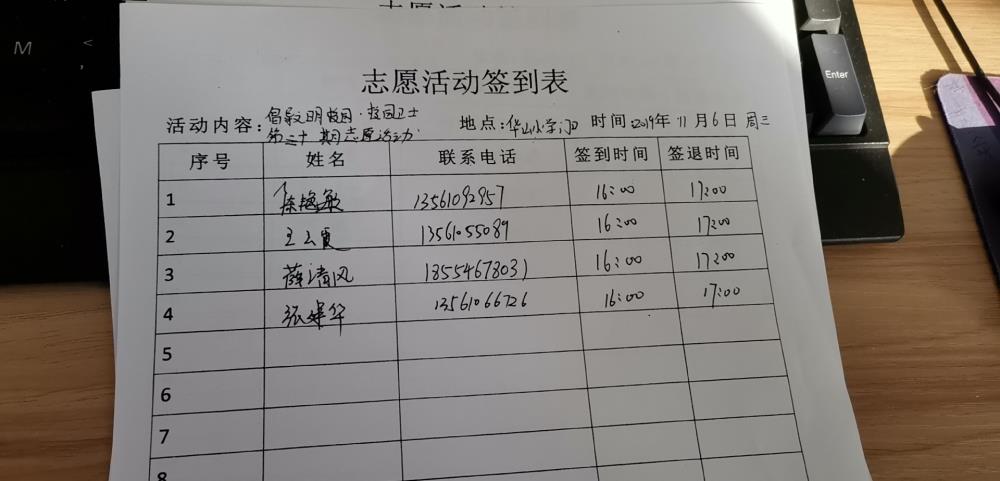 M
<
,
Enter
志愿活动签到表
活动内容:倡导文明校园·校园卫士
第二十期志愿活动
地点:华山小学门口 时间:2019年11月6日 周三
序号 姓名 联系电话 签到时间 签退时间
1 徐艳敏 13561092957 16:00 17:00
2 王云霞 13561055089 16:00 17:00
3 薛清风 18554678031 16:00 17:00
4 张建华 13561066726 16:00 17:00
5
6
7
8